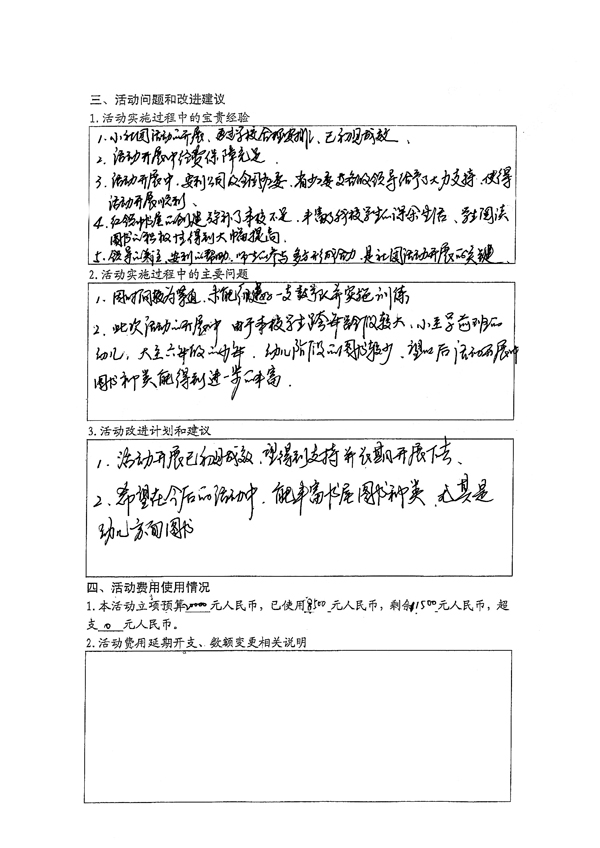 三、活动问题和改进建议
1.活动实施过程中的宝贵经验
1.小社团活动的开展,通过学校合理安排,已初见成效、
2.活动开展中经费保障充足.
3.活动开展中,安利公司及合团办、有少工委的领导给予了大力支持,使得
活动开展顺利、
4.红领巾书屋的创建弥补了学校不足,丰富了我校学生的课余生活、学生阅读
图书的积极性得到大幅提高.
5.领导的关注,安利的帮助,的参与多方形成合力,是社团活动开展的关键、
2.活动实施过程中的主要问题
1.因时间较为紧迫,未能组建一支教学队并实施训练
2.此次活动的开展中,由于本校学生跨年龄段较大,小至学前班的
幼儿,大至六年级的少年.幼儿阶段的图书较少.望以后活动开展中
图书种类能得到进一步的丰富.
3.活动改进计划和建议
1.活动开展已初见成效,望得到支持并长期开展下去、
2.希望在今后的活动中,能丰富书屋图书种类,尤其是
幼儿方面图书
四、活动费用使用情况
1.本活动立项预算 元人民币,已使用8500元人民币,剩余11500元人民币,超
支 0 元人民币。
2.活动费用延期开支、数额变更相关说明